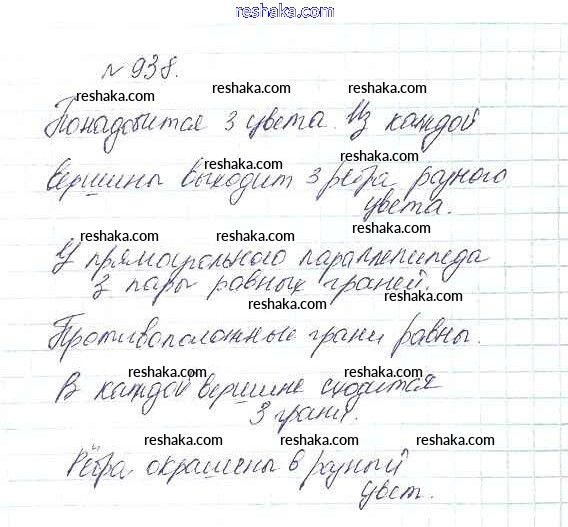 reshaka.com
№ 938.
reshaka.com reshaka.com reshaka.com
Понадобится 3 цвета. Из каждой
reshaka.com reshaka.com
вершины выходит 3 ребра разного
цвета.
reshaka.com reshaka.com reshaka.com
У прямоугольного параллелепипеда
3 пары равных граней.
reshaka.com reshaka.com
Противоположные грани равны.
reshaka.com reshaka.com
В каждой вершине сходится
3 грани.
reshaka.com reshaka.com reshaka.com
Рёбра окрашены в разный
цвет.